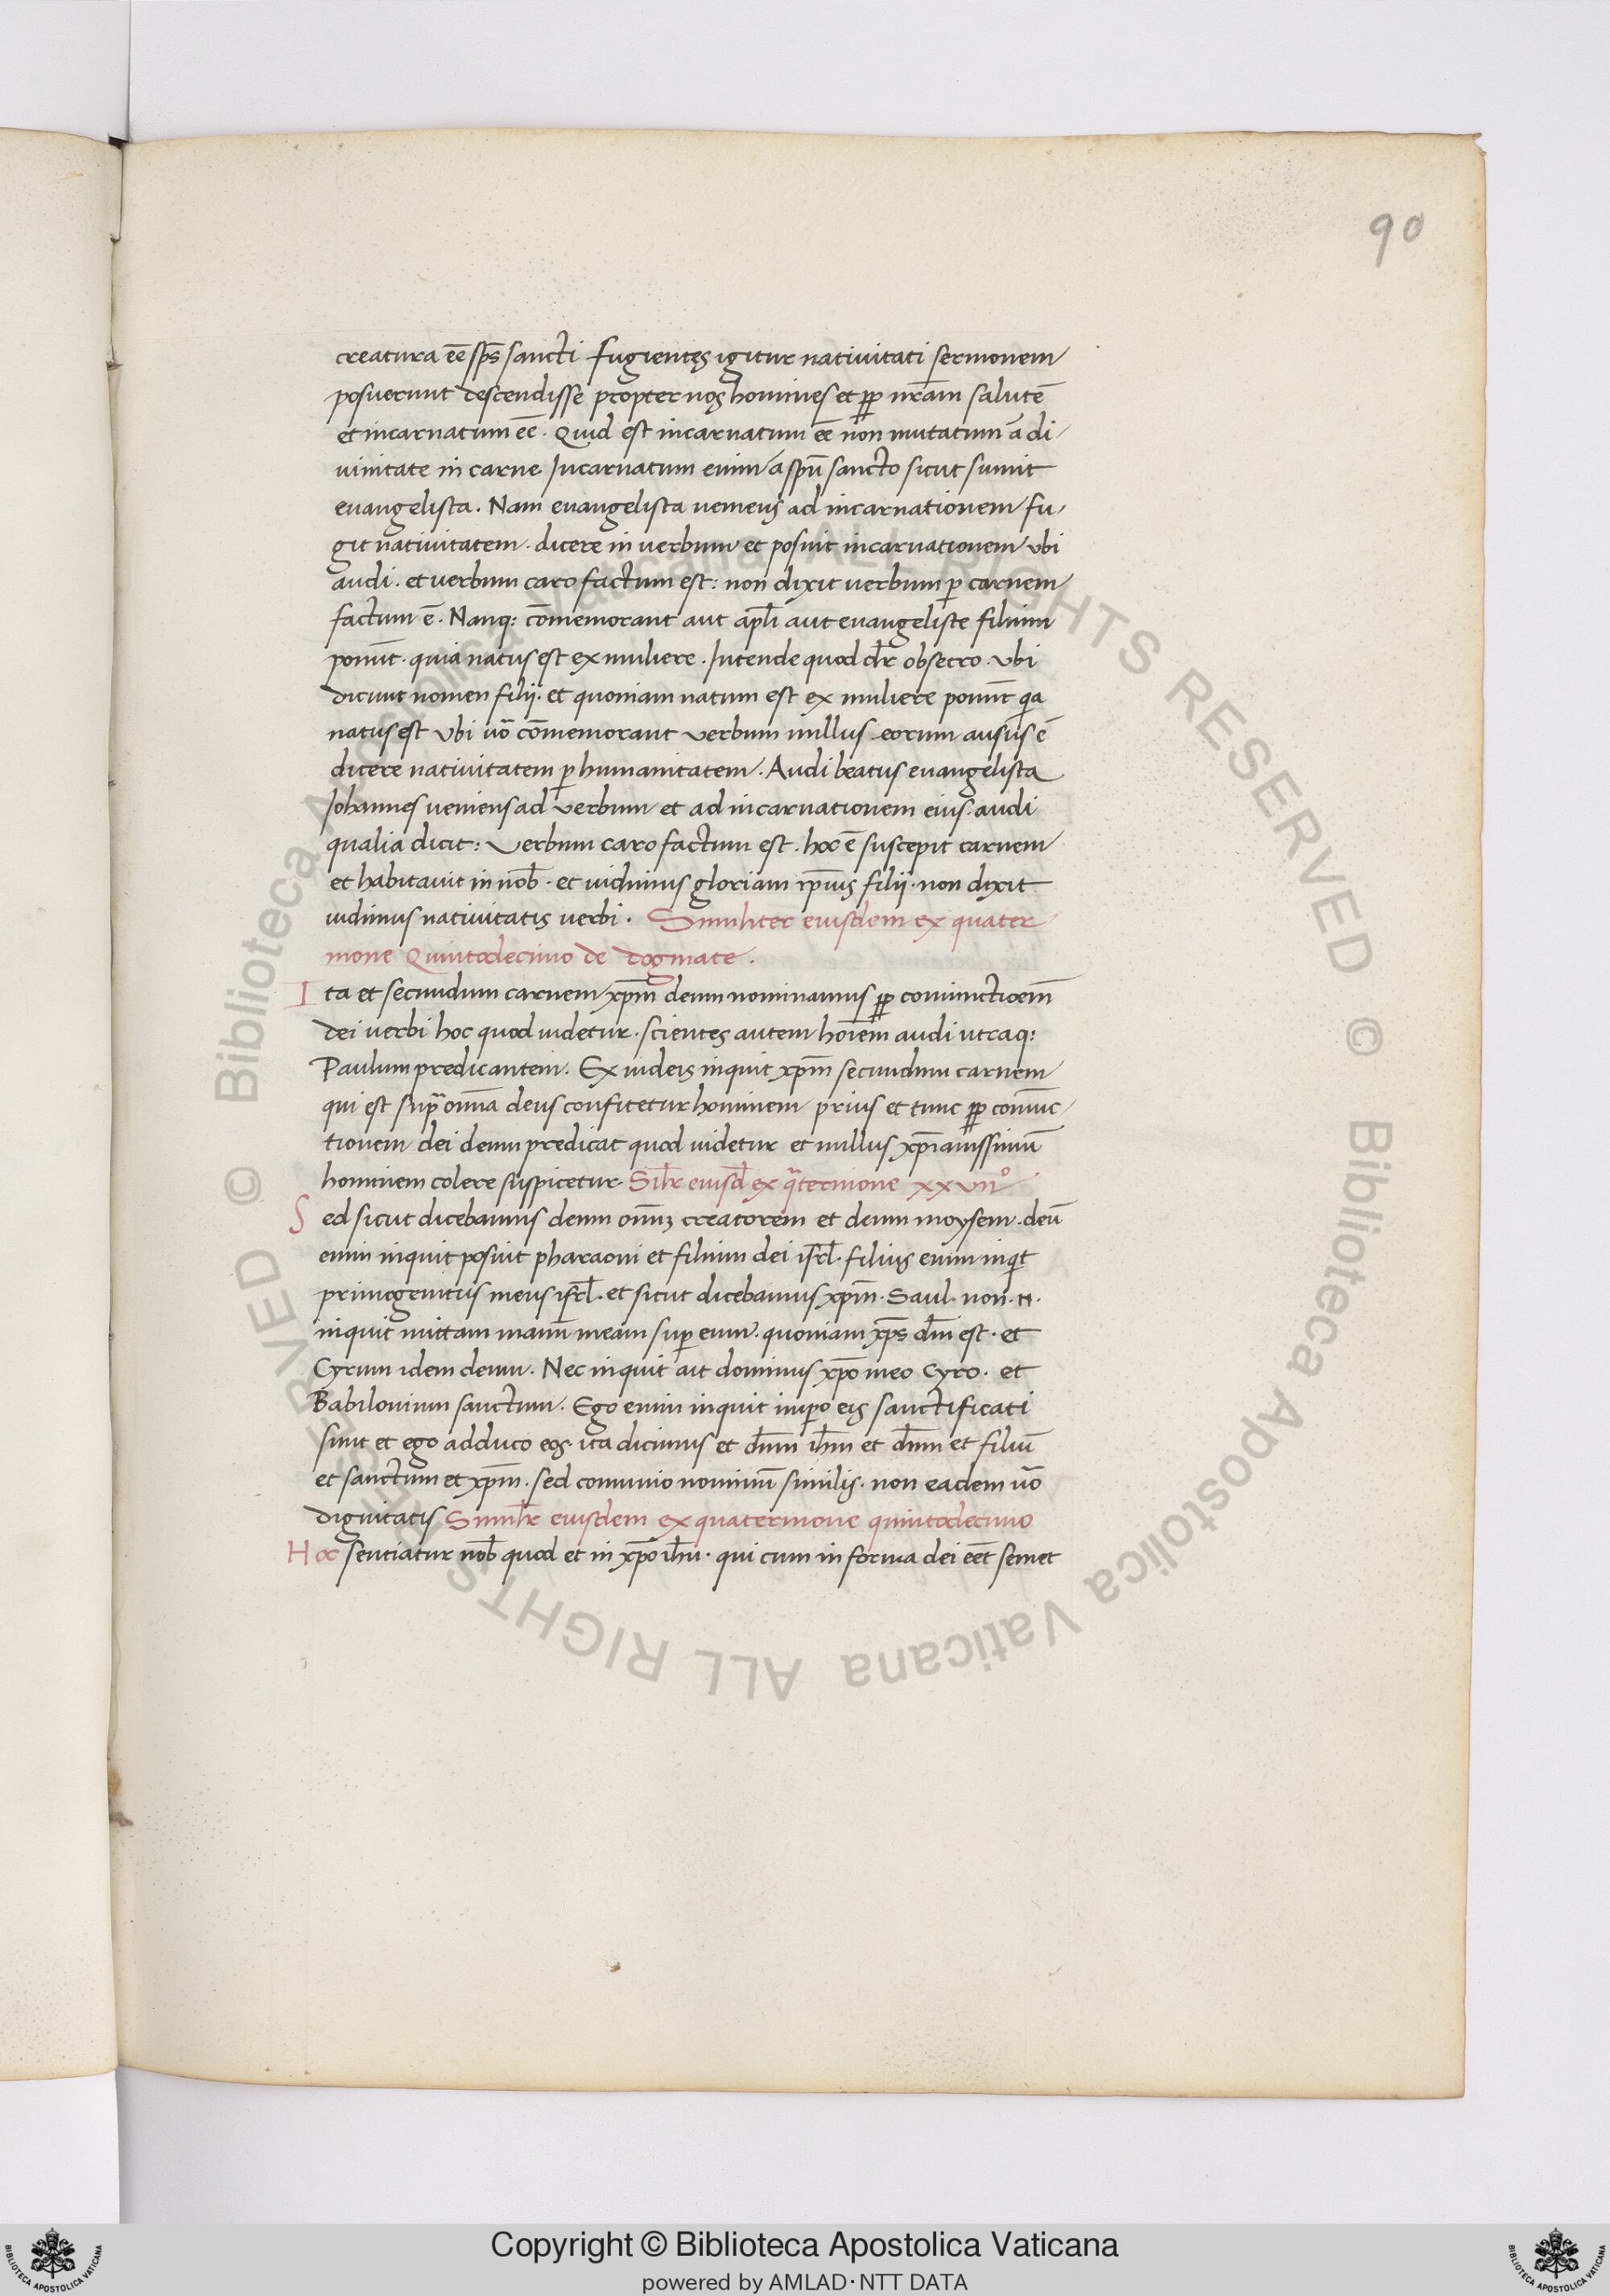 90
creatura eē sp̄s sancti fugientes igitur nativitati sermonem
posuerunt descendisse propter nos homines et ꝓp nr̄am salutē
et incarnatum eē. Quid est incarnatum eē non mutatum ā di-
vinitate in carne Incarnatum enim ā spū sancto sicut sumit
evangelista. Nam evangelista veniens ad incarnationem fu-
git nativitatem. dicere in verbum et posuit incarnationem ubi
audi. et verbum caro factum est: non dixit verbum ꝑ carnem
factum ē. Nanq: cōmemorant aut apl̄i aut evangeliste filium
ponūt. quia natus est ex muliere. Intende quod dr̄ obsecro. Ubi
dicunt nomen filij. et quoniam natum est ex muliere ponūt qia
natus est Ubi uō cōmemorant verbum nullus eorum ausus ē
dicere nativitatem ꝑ humanitatem. Audi beatus evangelista
Johannes veniens ad verbum et ad incarnationem eius. audi
qualia dicit: Verbum caro factum est. hoc ē suscepit carnem
et habitavit in nob̄. et vidimus gloriam ip̄ius filij. non dixit
vidimus nativitatis verbi. Similiter eiusdem ex quater
nione Quintodecimo de dogmate.
Ita et secundum carnem xp̄m deum nominamus ꝓp coniunctioēm
dei verbi hoc quod videtur. scientes autem hoīem audi utraq:
Paulum predicantem. Ex iudeis inquit xp̄m secundum carnem
qui est supra om̄a deus confitetur hominem prius et tunc ꝓp coniunc-
tionem dei deum predicat quod videtur et nullus xp̄ianissimū
hominem colere suspicetur. Silr̄ eiusd̄ ex qaternione xxvii°
Sed sicut dicebamus deum om̄ꝫ creatorem et deum moysem. deū
enim inquit posuit pharaoni et filium dei isrl̄. filius enim inqit
primogenitus meus isrl̄. et sicut dicebamus xp̄m. Saul. non. n.
inquit mittam manū meam super eum. quoniam xp̄s dn̄i est. et
Cyrum idem deum. Nec inquit ait dominus xp̄o meo Cyro. et
Babilonium sanctum. Ego enim inquit impero eis sanctificati
sunt et ego adduco eos. ita dicimus et dn̄m ih̄m et dn̄m et filiū
et sanctum et xp̄m. sed comunio nominū similis. non eadem uō
dignitatis Similr̄ eiusdem ex quaternione quintodecimo
Hoc sentiatur nob̄ quod et in xp̄o ih̄u. qui cum in forma dei eēt semet
Copyright © Biblioteca Apostolica Vaticana
powered by AMLAD·NTT DATA
© Biblioteca Apostolica Vaticana ALL RIGHTS RESERVED © Biblioteca Apostolica Vaticana ALL RIGHTS RESERVED
BIBLIOTECA APOSTOLICA VATICANA
BIBLIOTECA APOSTOLICA VATICANA